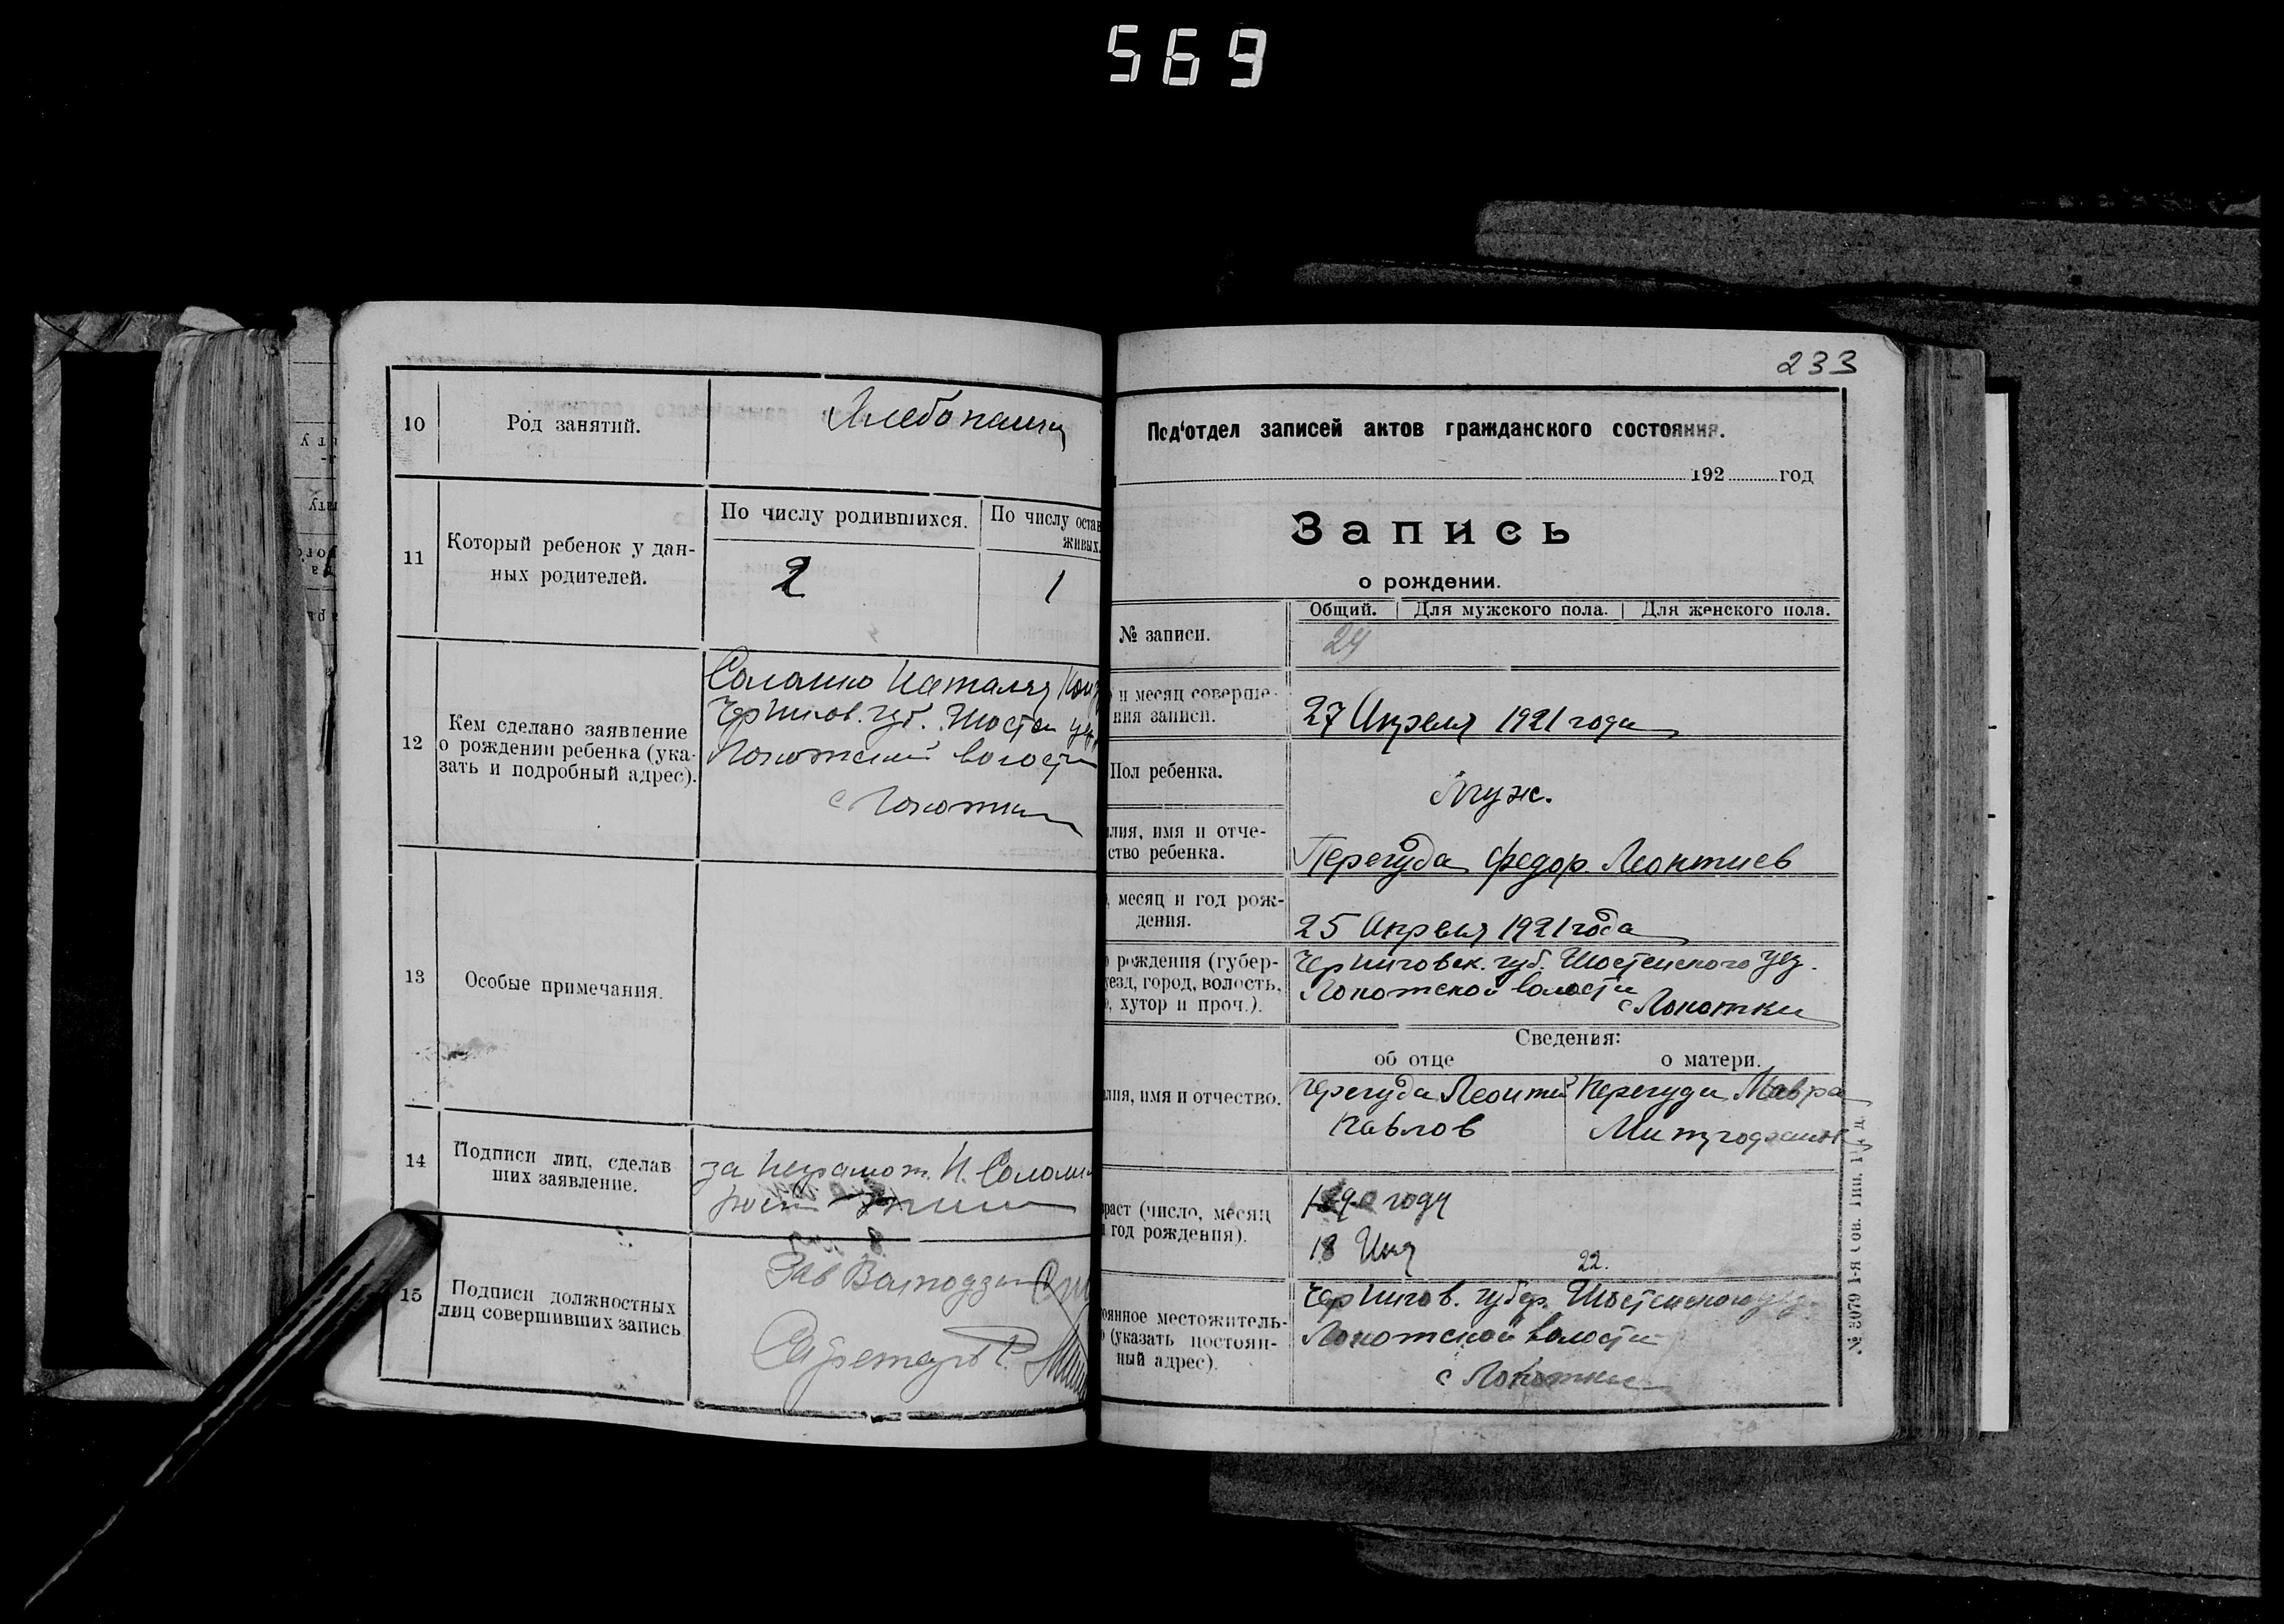 569
10
Род занятий.
Хлебопашец
11
Который ребенок у дан-
ных родителей.
По числу родившихся.
По числу остав
живых.
2
1
12
Кем сделано заявление
о рождении ребенка (ука-
зать и подробный адрес).
Соломко Наталья
Чернигов. губ. Шостен уез
волости
с
13
Особые примечания.
14
Подписи лиц, сделав
ших заявление.
за неграмот. Н. Солом
15
Подписи должностных
лиц совершивших запись
Зав
Секретарь
233
Под‘отдел записей актов гражданского состояния.
192 год
Запись
о рождении.
Общий.
Для мужского пола.
Для женского пола.
№ записи.
24
и месяц соверше-
ния записи.
27 Апреля 1921 года
Пол ребенка.
Муж.
лия, имя и отче-
ство ребенка.
Перегуда Федор Леонтиев
, месяц и год рож-
дения.
25 Апреля 1921 года
рождения (губер-
уезд, город, волость,
, хутор и проч.).
Черниговск. губ. Шостенского уез.
волости
с
Сведения:
об отце
о матери.
лия, имя и отчество.
Перегуда Леонтий
Павлов
Перегуда Мавра
раст (число, месяц
год рождения).
году
18
22.
оянное местожитель-
(указать постоян-
ный адрес).
Чернигов. губер. Шостенского уез.
волости
с
№ 3079 1-я Сов. Тип.